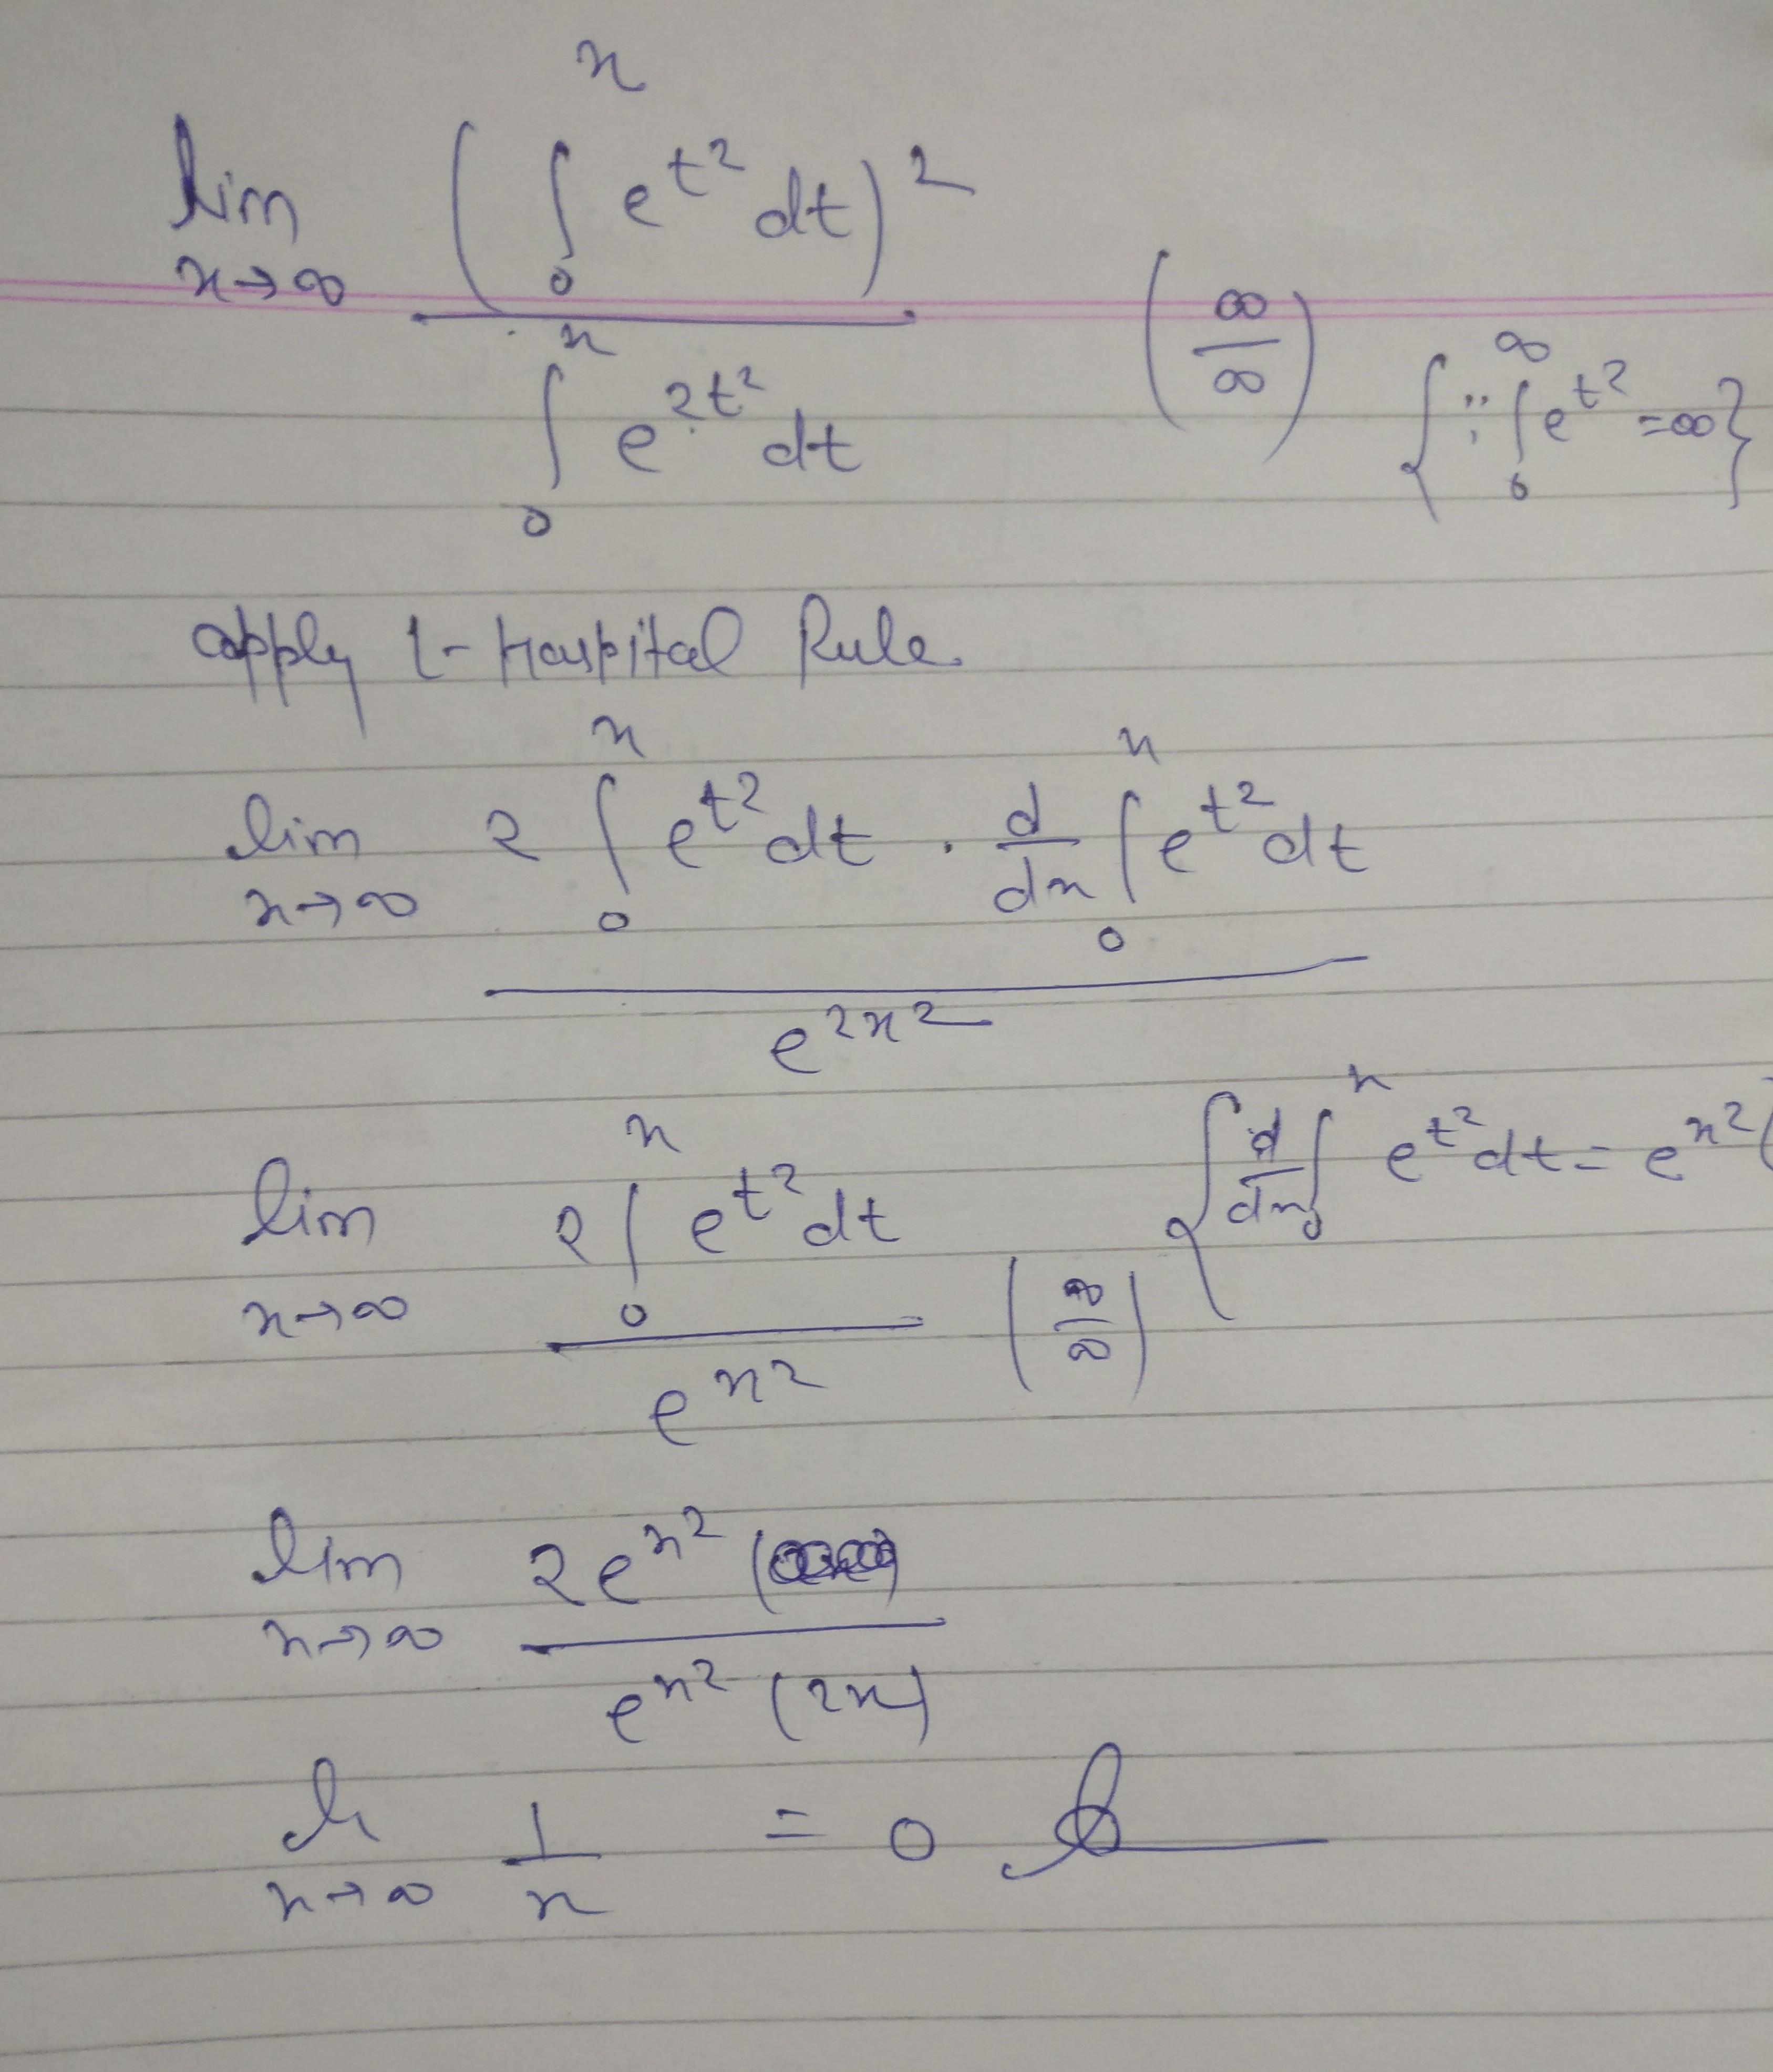 lim x→∞ (∫₀ˣ e^{t²} dt)² / ∫₀ˣ e^{2t²} dt (∞/∞) {∵ ∫₀^∞ e^{t²} = ∞}
apply L-Hospital Rule
lim x→∞ 2 ∫₀ˣ e^{t²} dt · d/dx ∫₀ˣ e^{t²} dt / e^{2x²}
lim x→∞ 2 ∫₀ˣ e^{t²} dt / e^{x²} (∞/∞) { d/dx ∫₀ˣ e^{t²} dt = e^{x²} (
lim x→∞ 2e^{x²} / e^{x²} (2x)
li x→∞ 1/x = 0